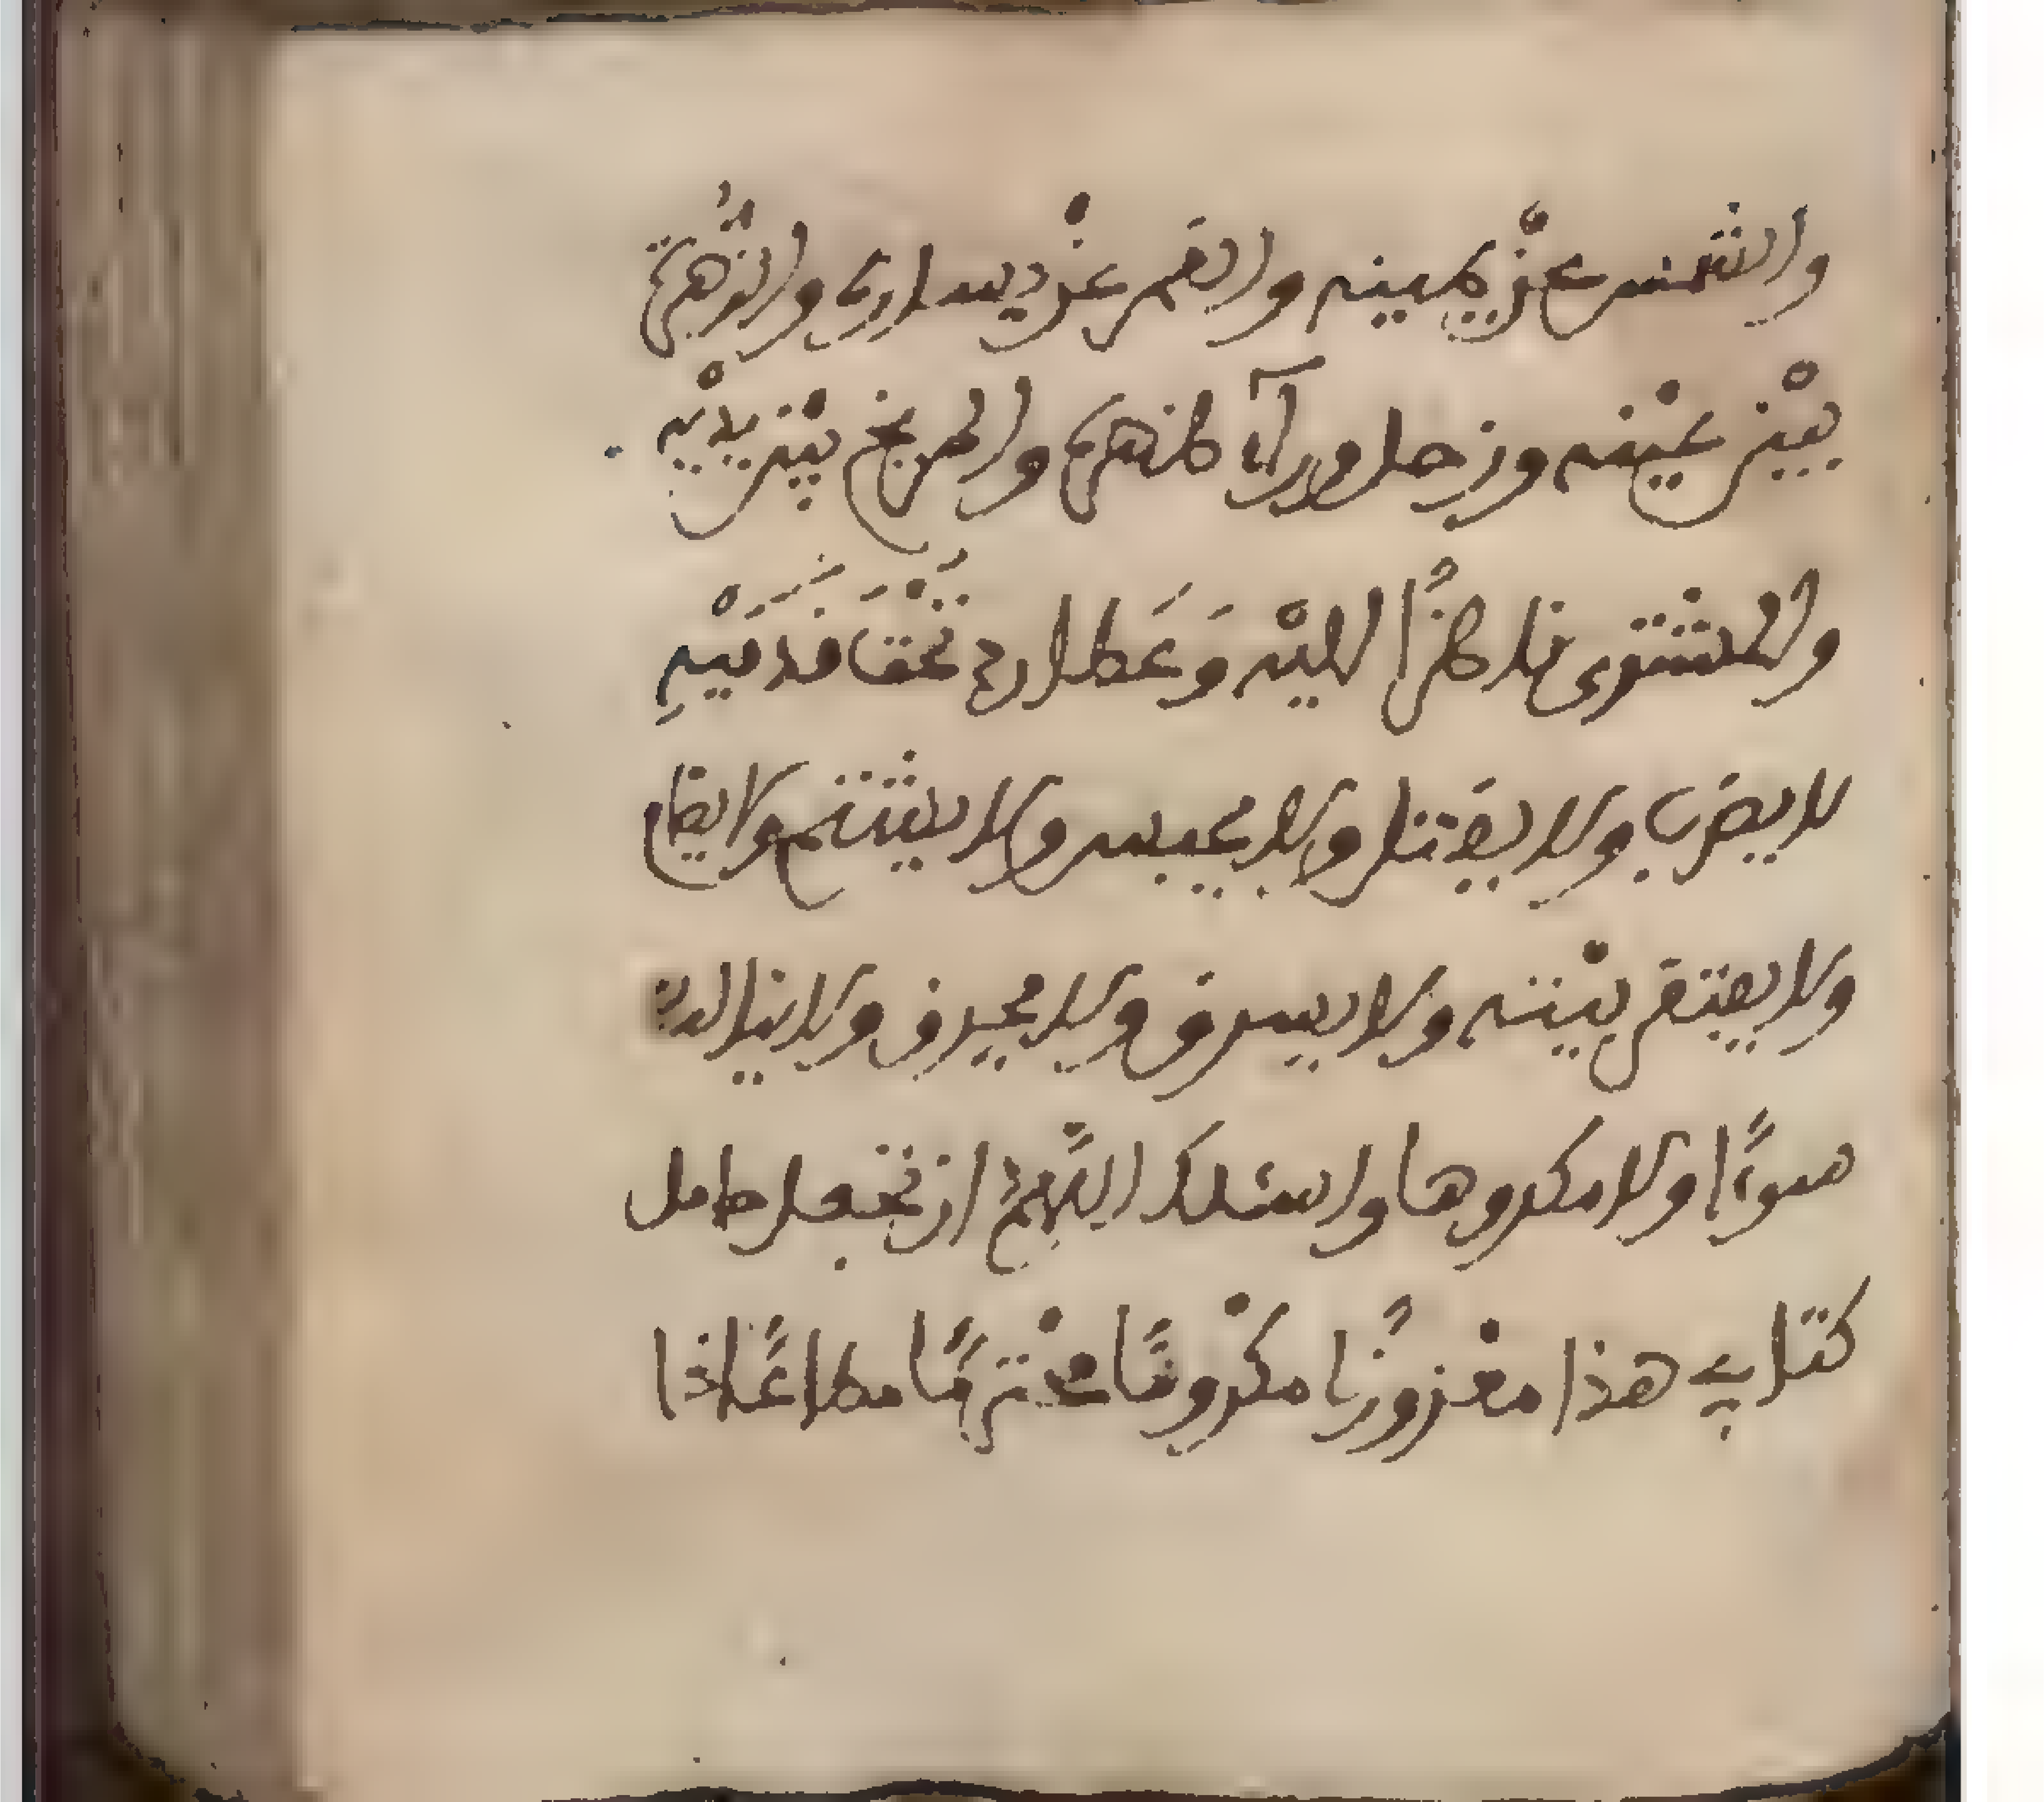 والشمس عنْ يمينه والقمر عنْ يساره والزُّهرة
بيْن عيْنيه وزحل ورآ ظهره والمريخ بيْن يديْه
والمشْتري ناظرًا اليْه وَعَطارد تحْتَ قَدَمَيْهِ
لا يضرب ولا يقتل ولا يحبس ولا يشْتم ولا
ولا يفتقر بيْته ولا يسرق ولا يحرق ولا ينال
سوءًا ولا مكروها واسئلك اللَّهمّ ان تجعل حامل
كتابي هذا معْزوزًا مكْرومًا محْترمًا مطاعًا اذا